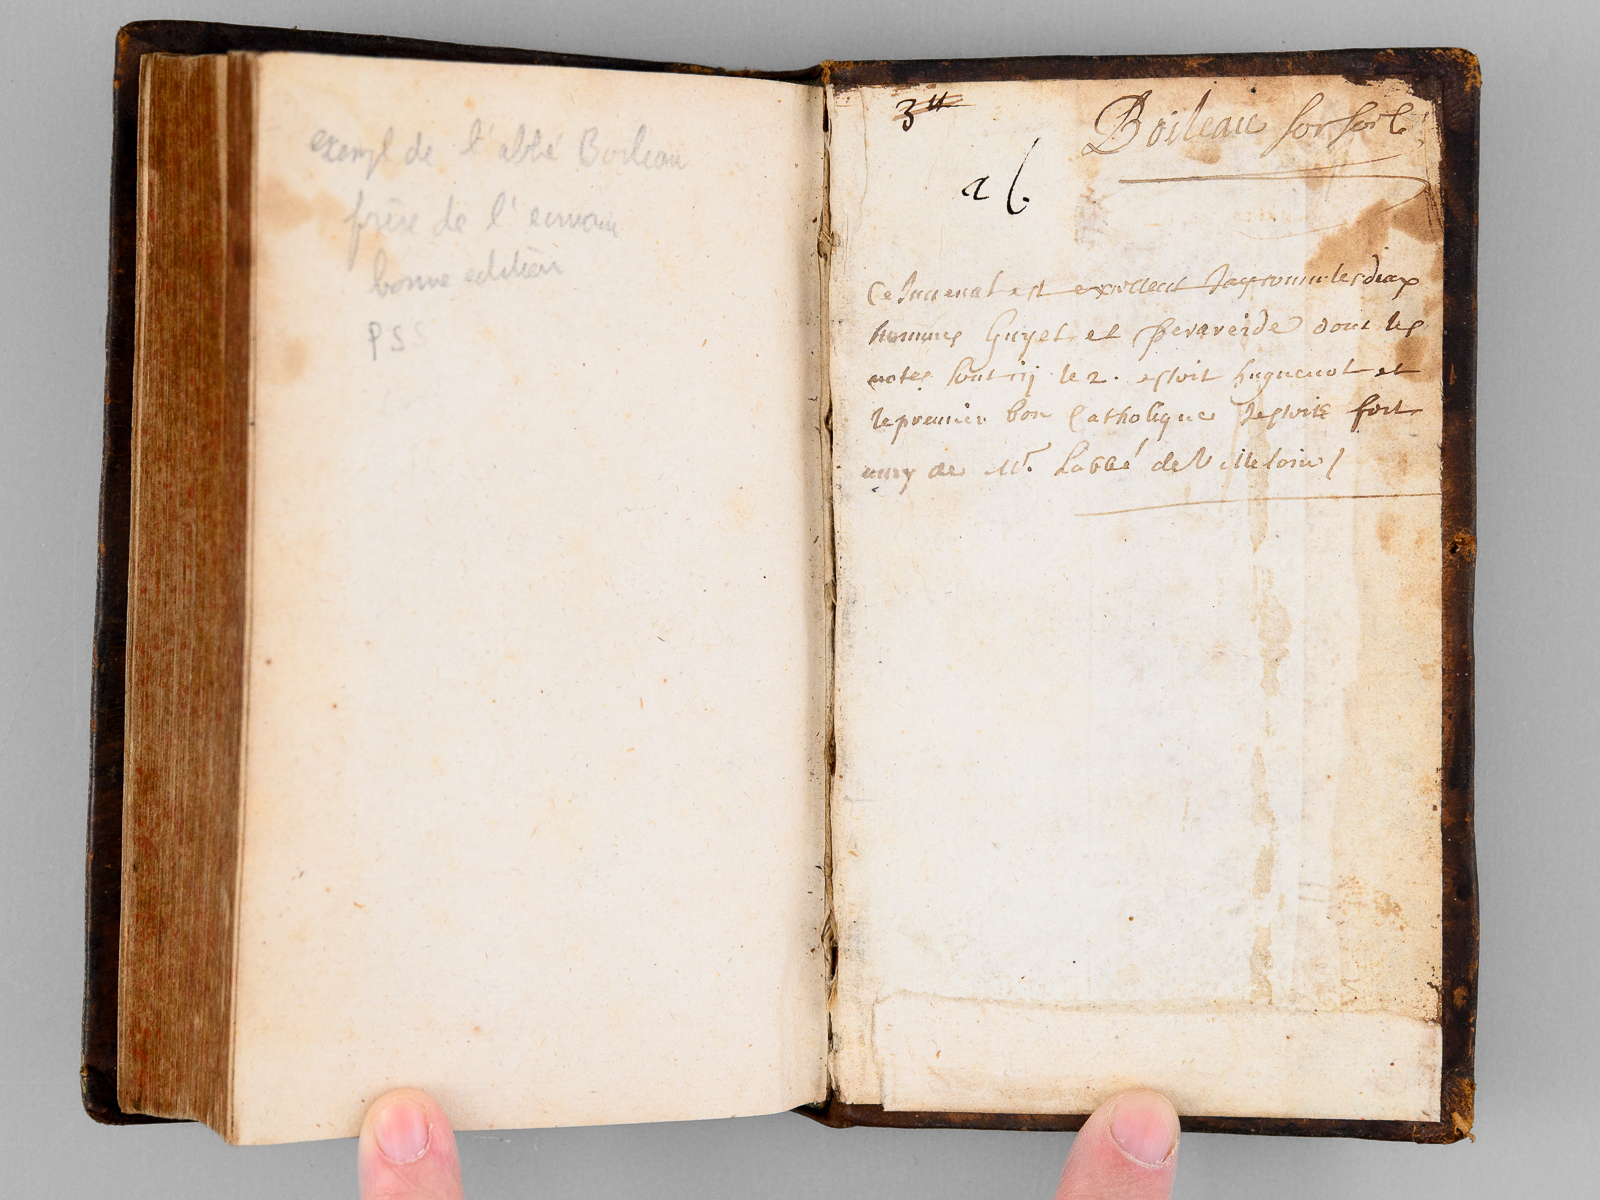 exempl de l'abbé Boileau
frère de l'écrivain
bonne édition
PSS
3
Boileau
26
Ce Juuenal est excellent Jay connu les deux
hommes Guyet et dont les
notes sont icj le 2. estoit huguenot et
le premier bon Catholique Jestois fort
amy de Mr. Labbé de Villeloin